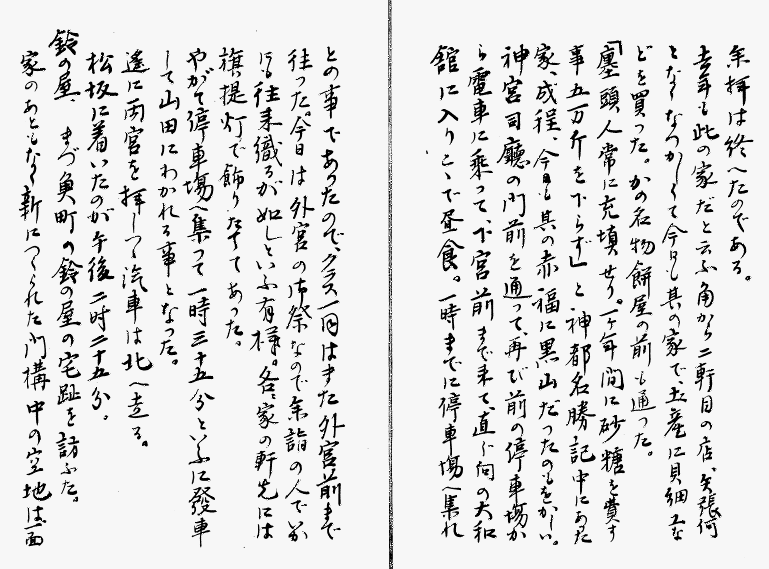 参拝は終へたのである。
去年も此の家だと云ふ角から二軒目の店、矢張何
となくなつかしくて今日も其の家で、土産に貝細工な
どを買つた。かの名物餅屋の前も通つた。
「塵頭人常に充填せり。一ケ年間に砂糖を費す
事五万斤を下らず」と神都名勝記中にあつた
家、成程、今日も其の赤福に黒山だつたのもをかしい。
神宮司廳の門前を通つて、再び前の停車場か
ら電車に乗つて、下宮前まで来て、直ぐ向の大和
館に入りこゝで昼食。一時までに停車場へ集れ
との事であつたので、クラス一同はまた外宮前まで
往つた。今日は外宮の御祭なので参詣の人で
にも往来織るが如しといふ有様。各、家の軒先には
旗提灯で飾りたてゝあつた。
やがて停車場へ集つて一時三十五分といふに發車
して山田にわかれる事となつた。
遙に両宮を拝しつゝ汽車は北へ走る。
松坂に着いたのが午後二時二十五分。
鈴の屋、まづ魚町の鈴の屋の宅趾を訪ふた。
家のあともなく新につくられた門構中の空地は一面